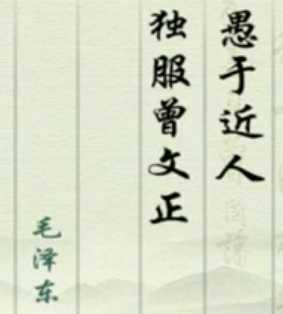 愚于近人
独服曾文正
毛泽东